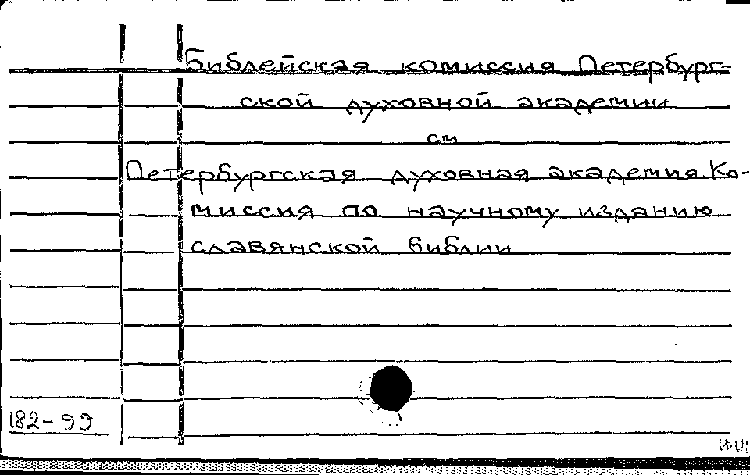 Библейская комиссия Петербург-
ской духовной академии
см
Петербургская духовная академия. Ко-
миссия по научному изданию
славянской библии
182-99